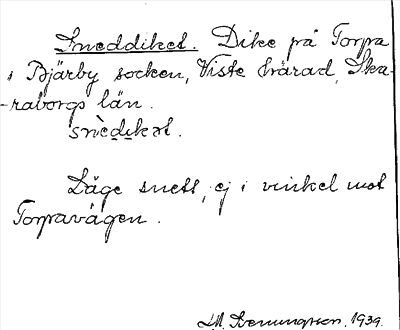 Sneddiket. Dike på Torpa
i Bjärby socken, Viste härad, Ska-
-raborgs län.
snèdikət.
Läge snett, ej i vinkel mot
Torpavägen.
1939.